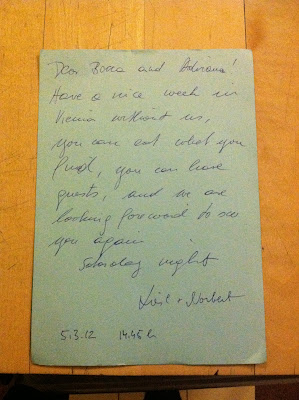 Dear Bocca and Adriana!
Have a nice week in
Vienna without us,
you can eat what you
find, you can have
guests, and we are
looking foreword to see
you again
Saturday night
+ Norbert
5.3.12 14.45 h